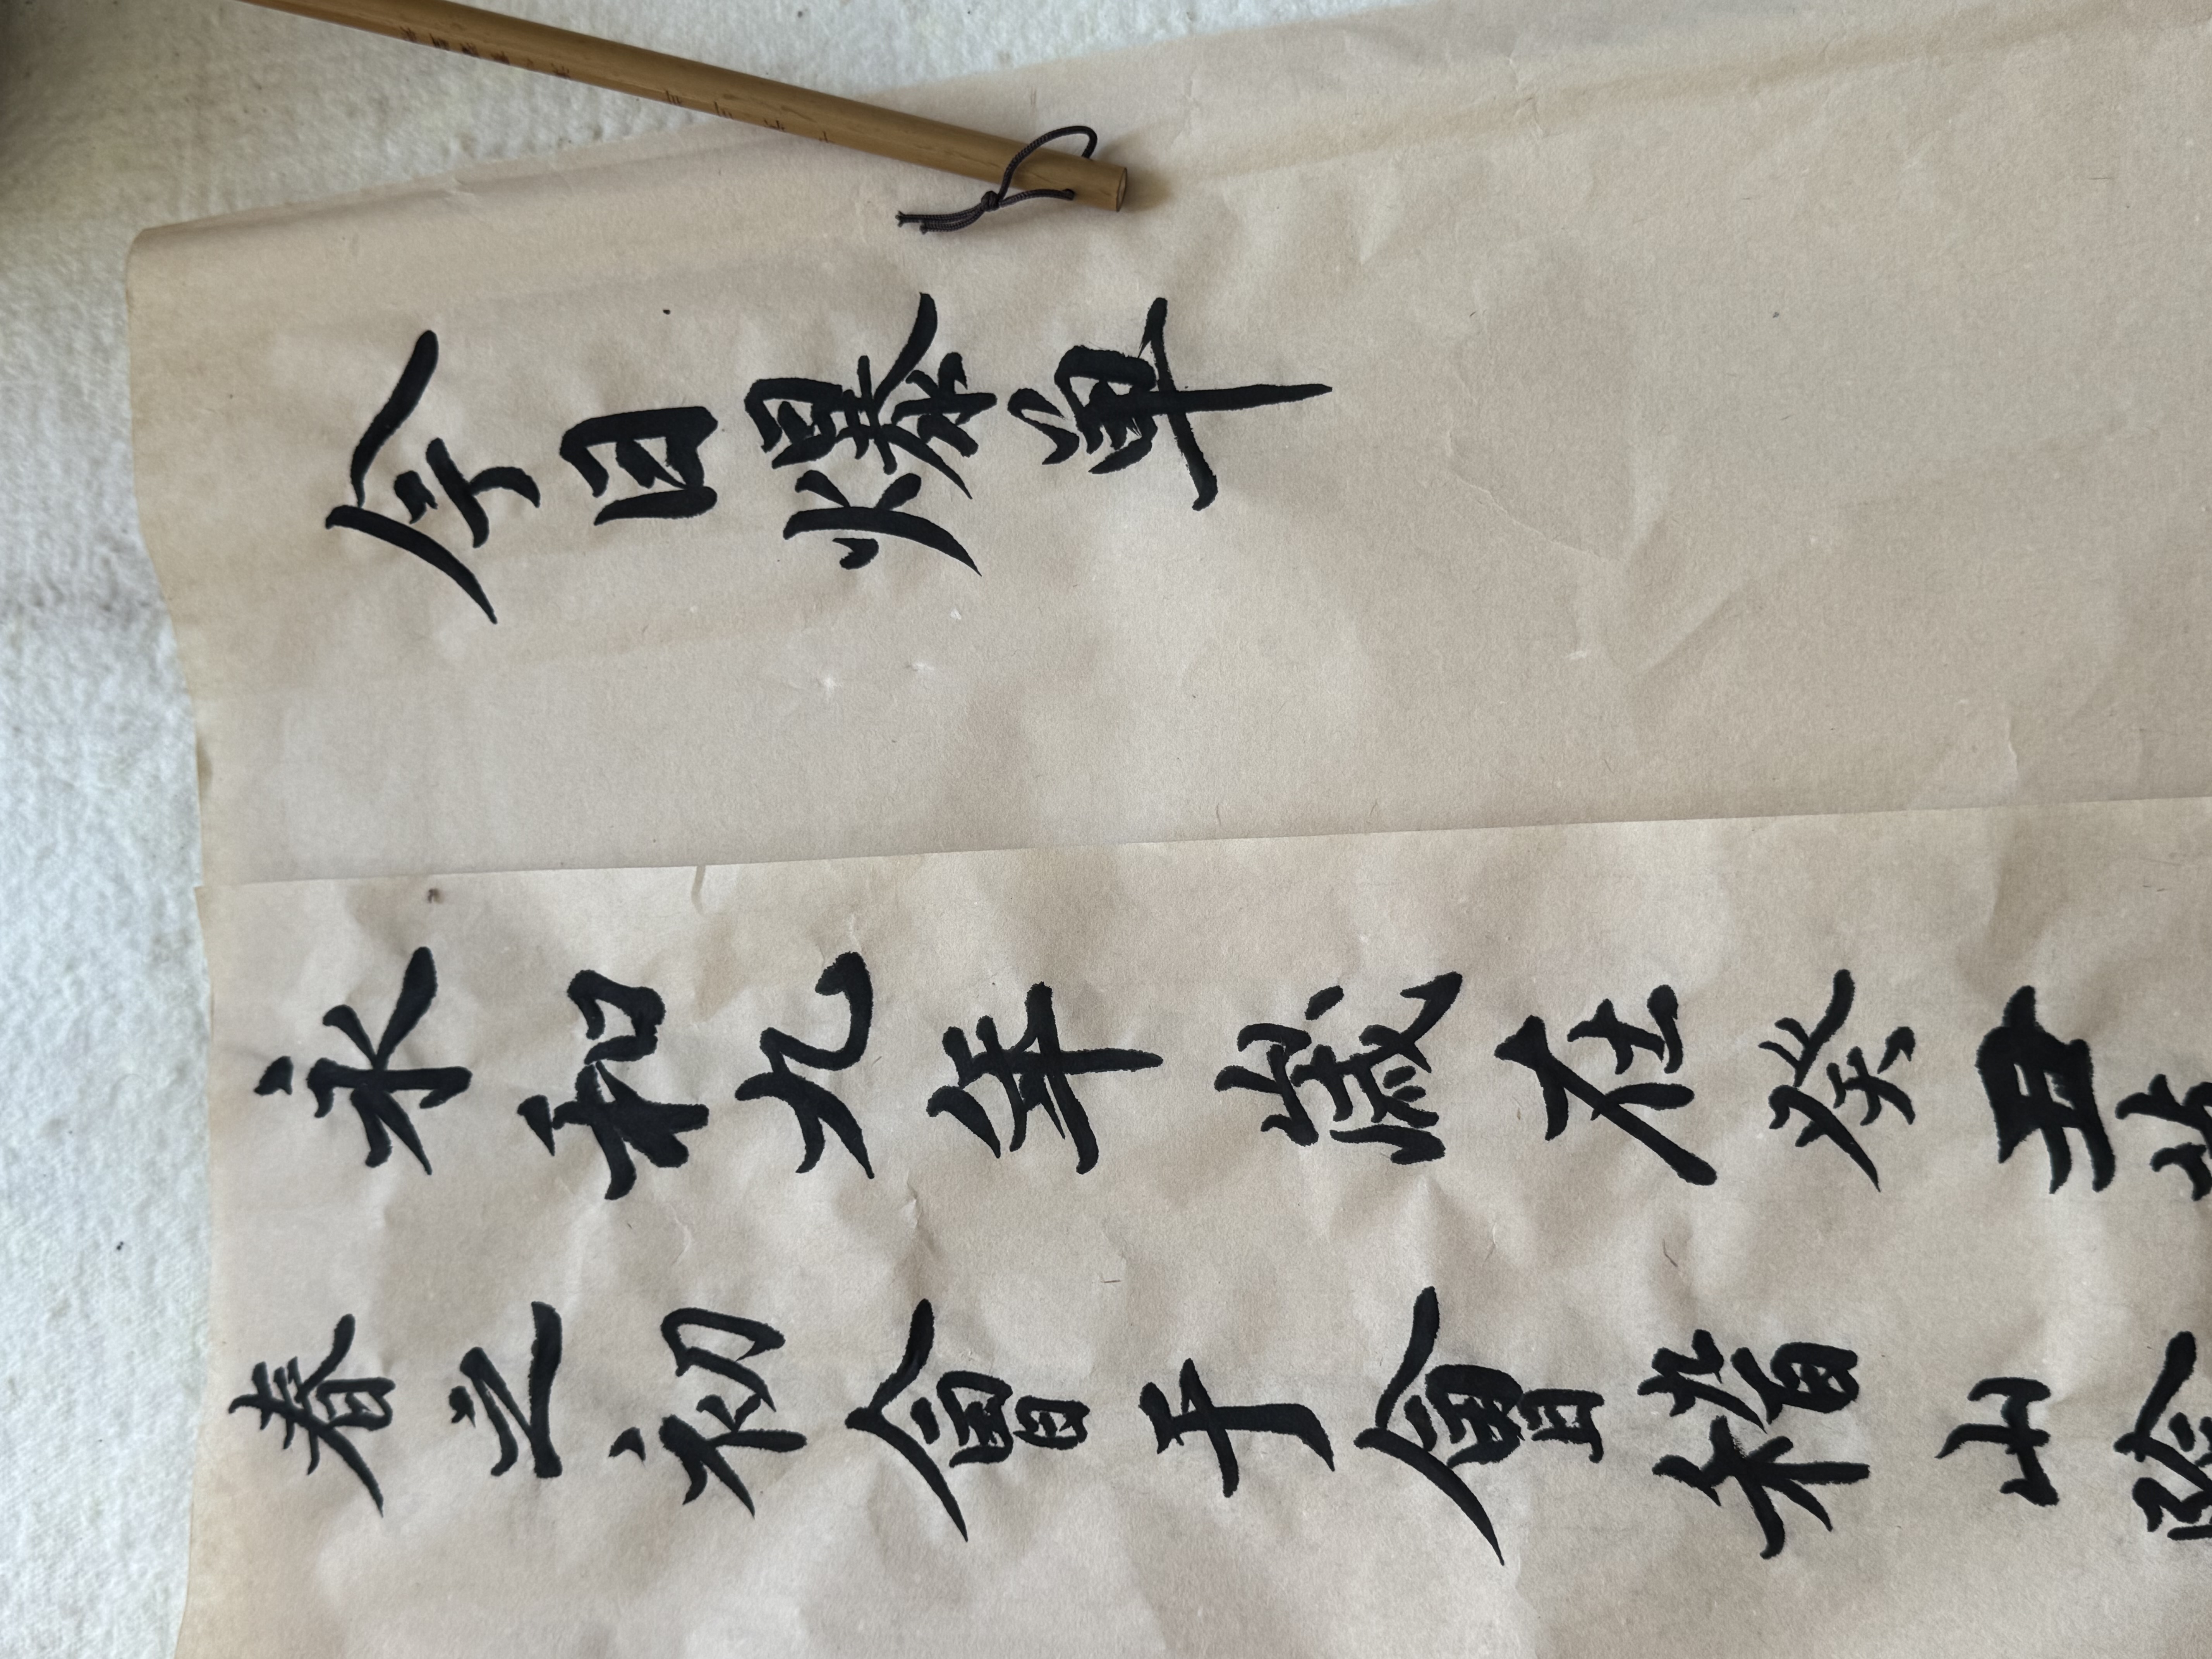 今日爆單
永和九年歲在癸丑
春之初會于會稽山陰